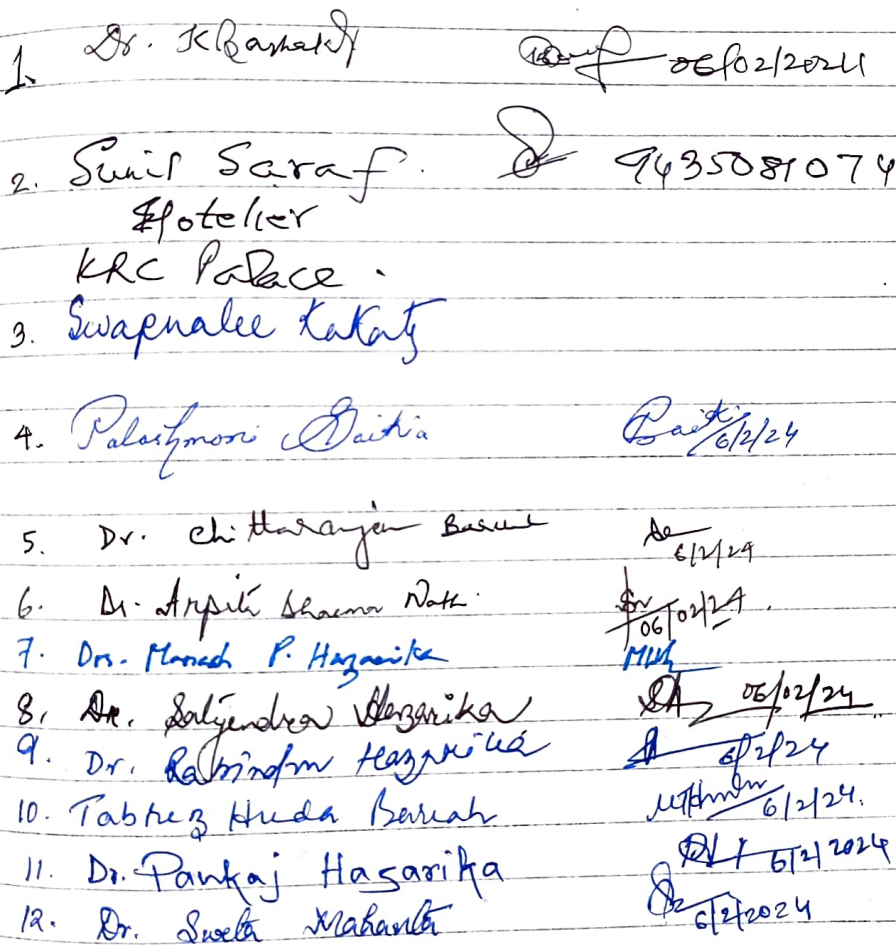 1. Dr. K Bashakh 06/02/2024
2. Sunil Saraf. 9435081074
Hotelier
KRC Palace.
3. Swapnalee Kakaty
4. Palashmoni Saikia 6/2/24
5. Dr. Chittaranjan Baruah 6/2/24
6. Dr. Arpita Sharma Nath. 06/02/24.
7. Drs. Manash P. Hazarika
8. Dr. Satyendra Hazarika 06/02/24
9. Dr. Rabindra Hazarika 6/2/24
10. Tabrez Huda Baruah 6/2/24.
11. Dr. Pankaj Hazarika 6/2/2024
12. Dr. Sweta Mahanta 6/2/2024